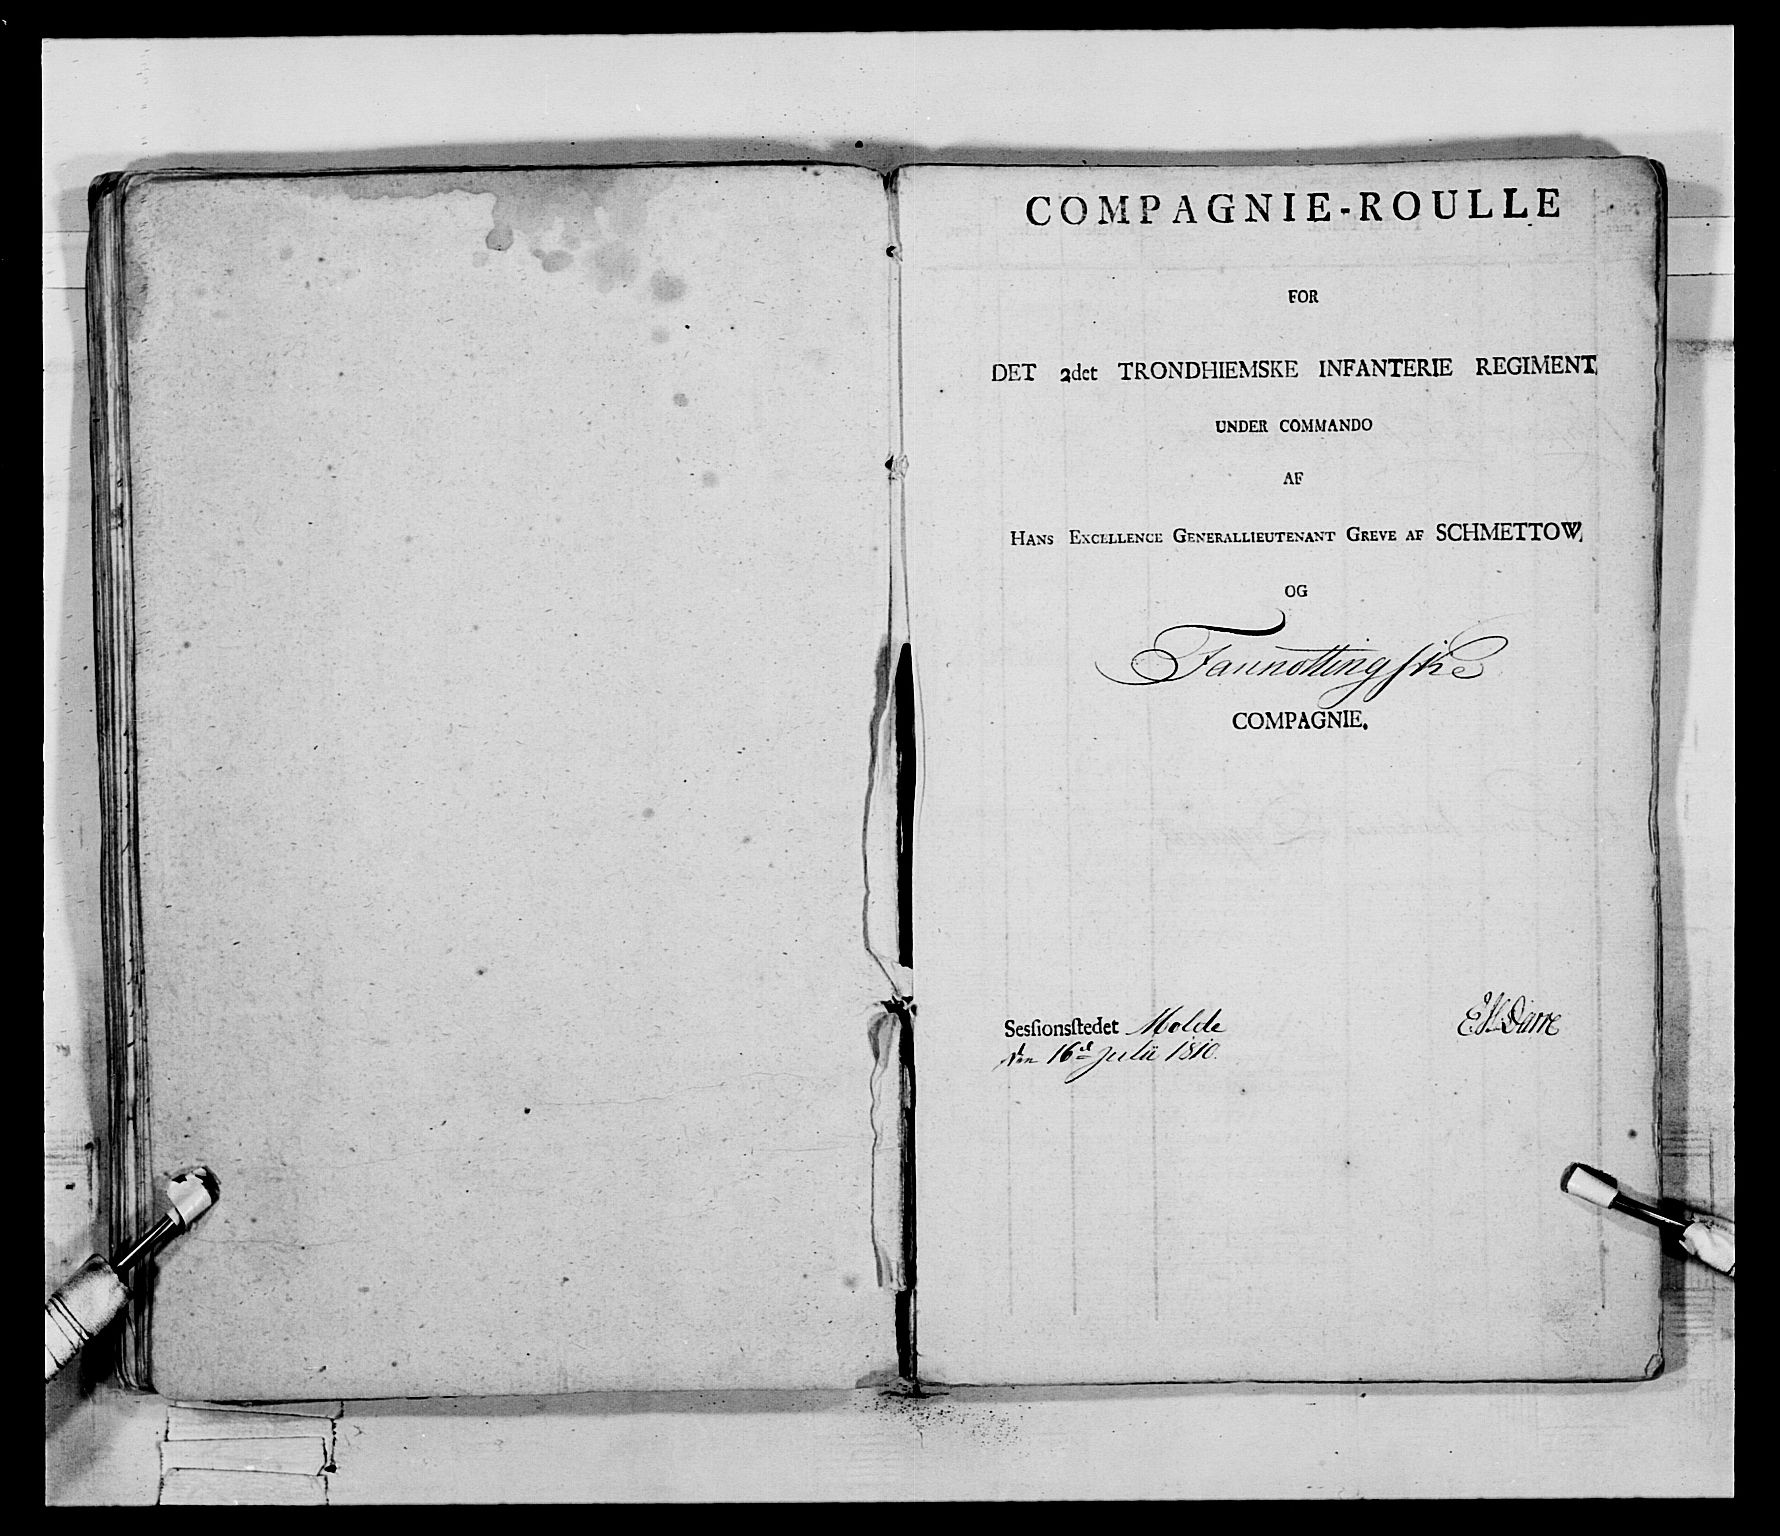 COMPAGNIE-ROULLE
FOR
DET 2det TRONDHIEMSKE INFANTERIE REGIMENT,
UNDER COMMANDO
AF
HANS EXCELLENCE GENERALLIEUTENANT GREVE AF SCHMETTOW,
OG
Tannottingske
COMPAGNIE.
Sesſionsſtedet Molde
den 16d Julii 1810.
Darre